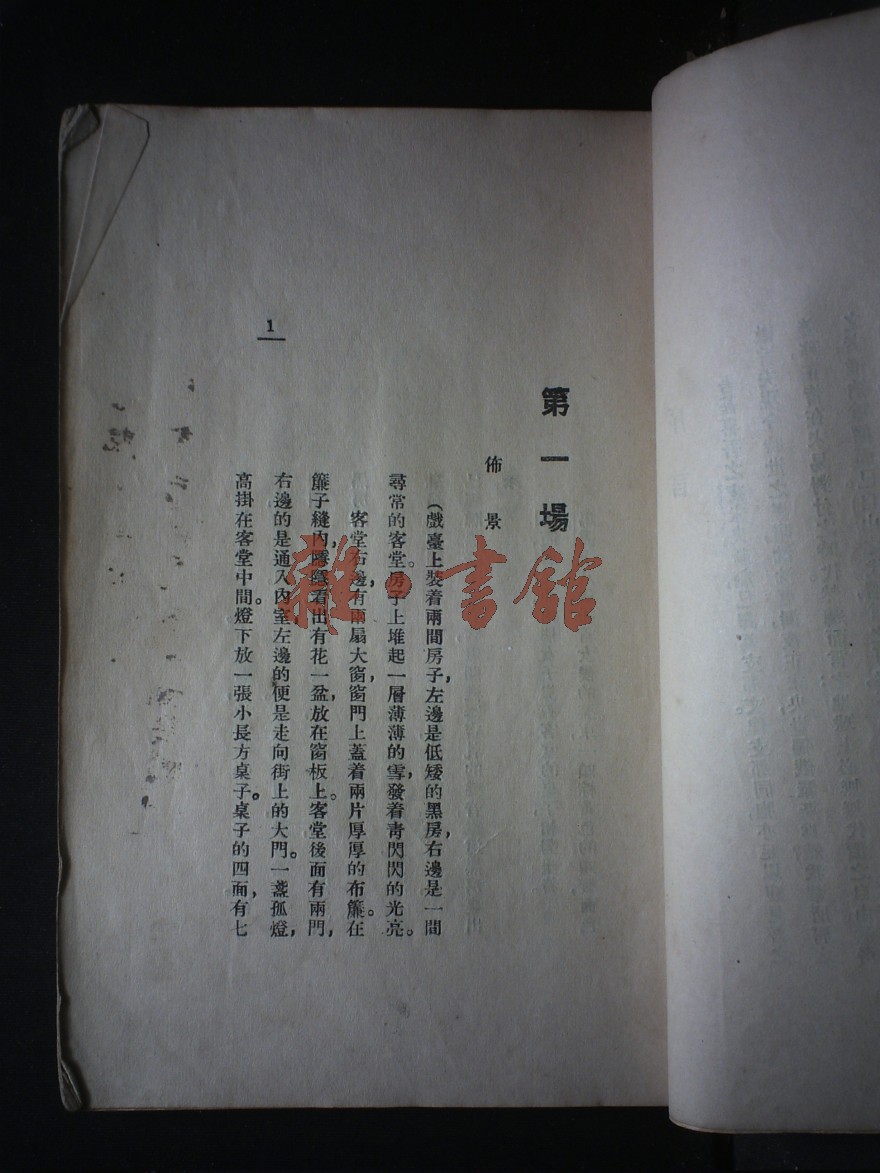 第一場
佈景
(戲臺上裝着兩間房子,左邊是低矮的黑房,右邊是一間
尋常的客堂。房子上堆起一層薄薄的雪,發着青閃閃的光亮。
客堂右邊,有兩扇大窗,窗門上蓋着兩片厚厚的布簾。在
簾子縫內,隱隱看出有花一盆,放在窗板上。客堂後面有兩門,
右邊的是通入內室,左邊的便是走向街上的大門。一盞孤燈,
高掛在客堂中間。燈下放一張小長方桌子。桌子的四面,有七
1
雜·書館